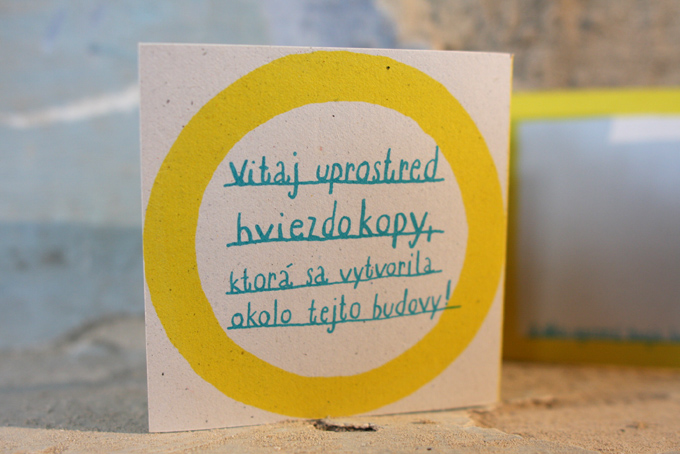 Vitaj uprostred
hviezdokopy,
ktorá sa vytvorila
okolo tejto budovy!